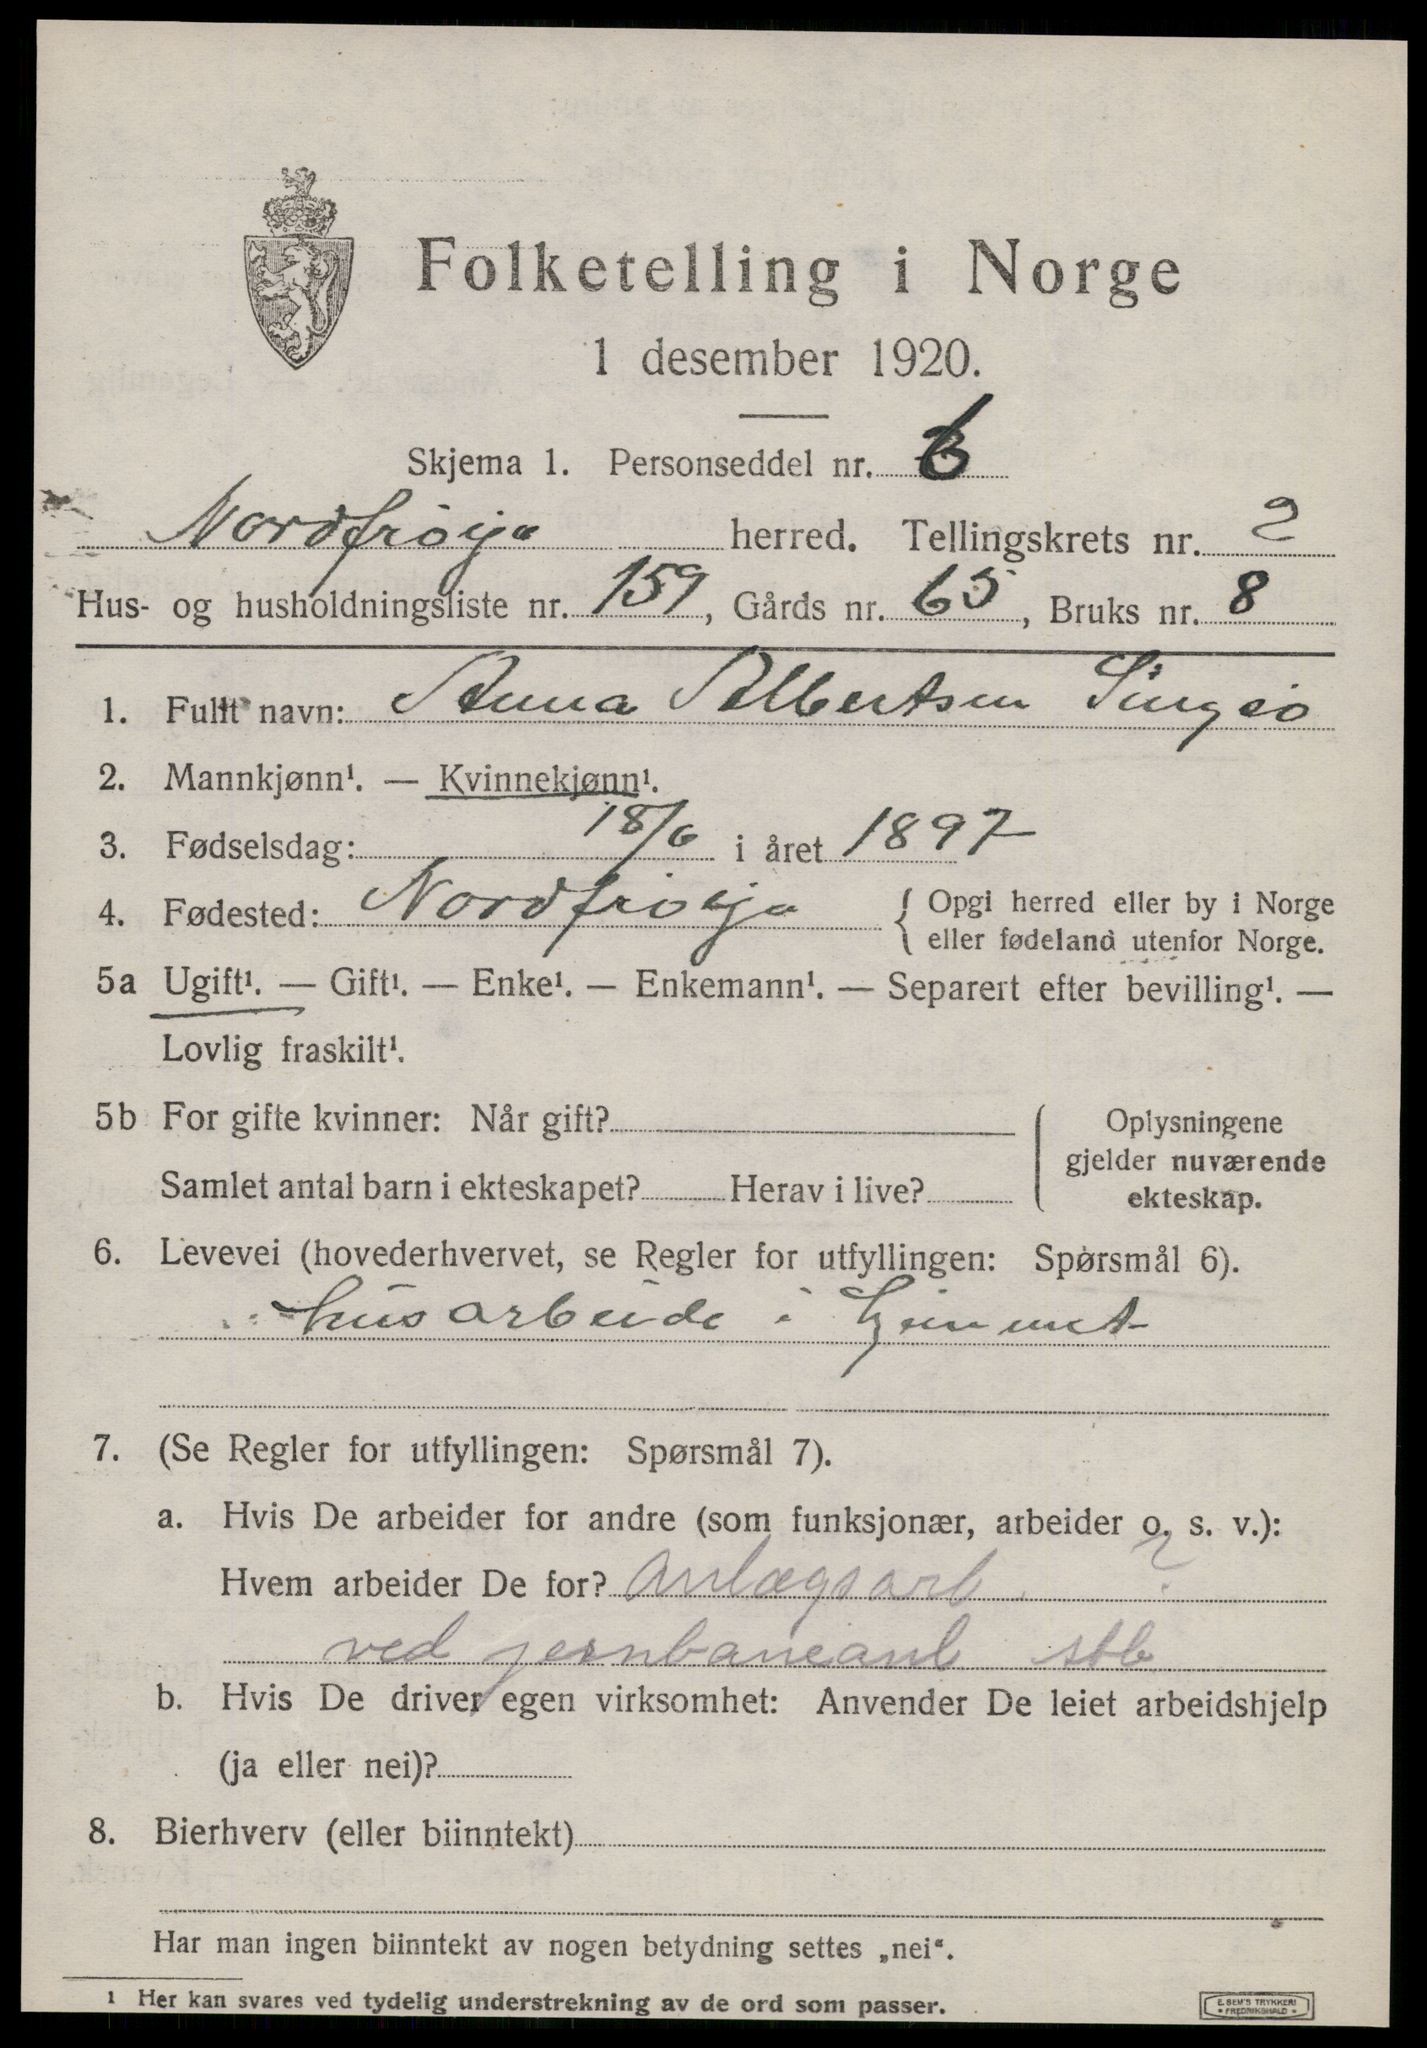 Folketelling i Norge
1 desember 1920.
Skjema 1. Personseddel nr. 6
Nordfrøya herred. Tellingskrets nr. 2
Hus- og husholdningsliste nr. 159, Gårds nr. 65, Bruks nr. 8
1. Fullt navn: Anna Albertsen
2. Mannkjønn¹. — Kvinnekjønn¹.
3. Fødselsdag: 18/6 i året 1897
4. Fødested: Nordfrøya { Opgi herred eller by i Norge
eller fødeland utenfor Norge.
5a Ugift¹. — Gift¹. — Enke¹. — Enkemann¹. — Separert efter bevilling¹. —
Lovlig fraskilt¹.
5b For gifte kvinner: Når gift?
Samlet antal barn i ekteskapet? Herav i live?
Oplysningene
gjelder nuværende
ekteskap.
6. Levevei (hovederhvervet, se Regler for utfyllingen: Spørsmål 6).
husarbeide i hjemmet
7. (Se Regler for utfyllingen: Spørsmål 7).
a. Hvis De arbeider for andre (som funksjonær, arbeider o. s. v.):
Hvem arbeider De for? Anlægsarb. ?
ved jernbaneanl
b. Hvis De driver egen virksomhet: Anvender De leiet arbeidshjelp
(ja eller nei)?
8. Bierhverv (eller biinntekt)
Har man ingen biinntekt av nogen betydning settes „nei“.
¹ Her kan svares ved tydelig understrekning av de ord som passer.
E. SEM'S TRYKKERI
* FREDRIKSHALD *